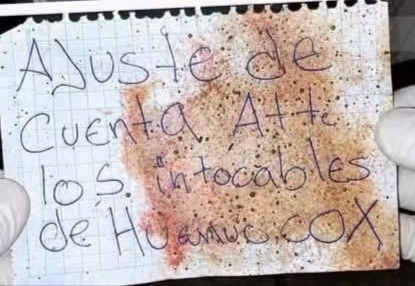 AJuste de
Cuenta Atte
los intocables
de COX